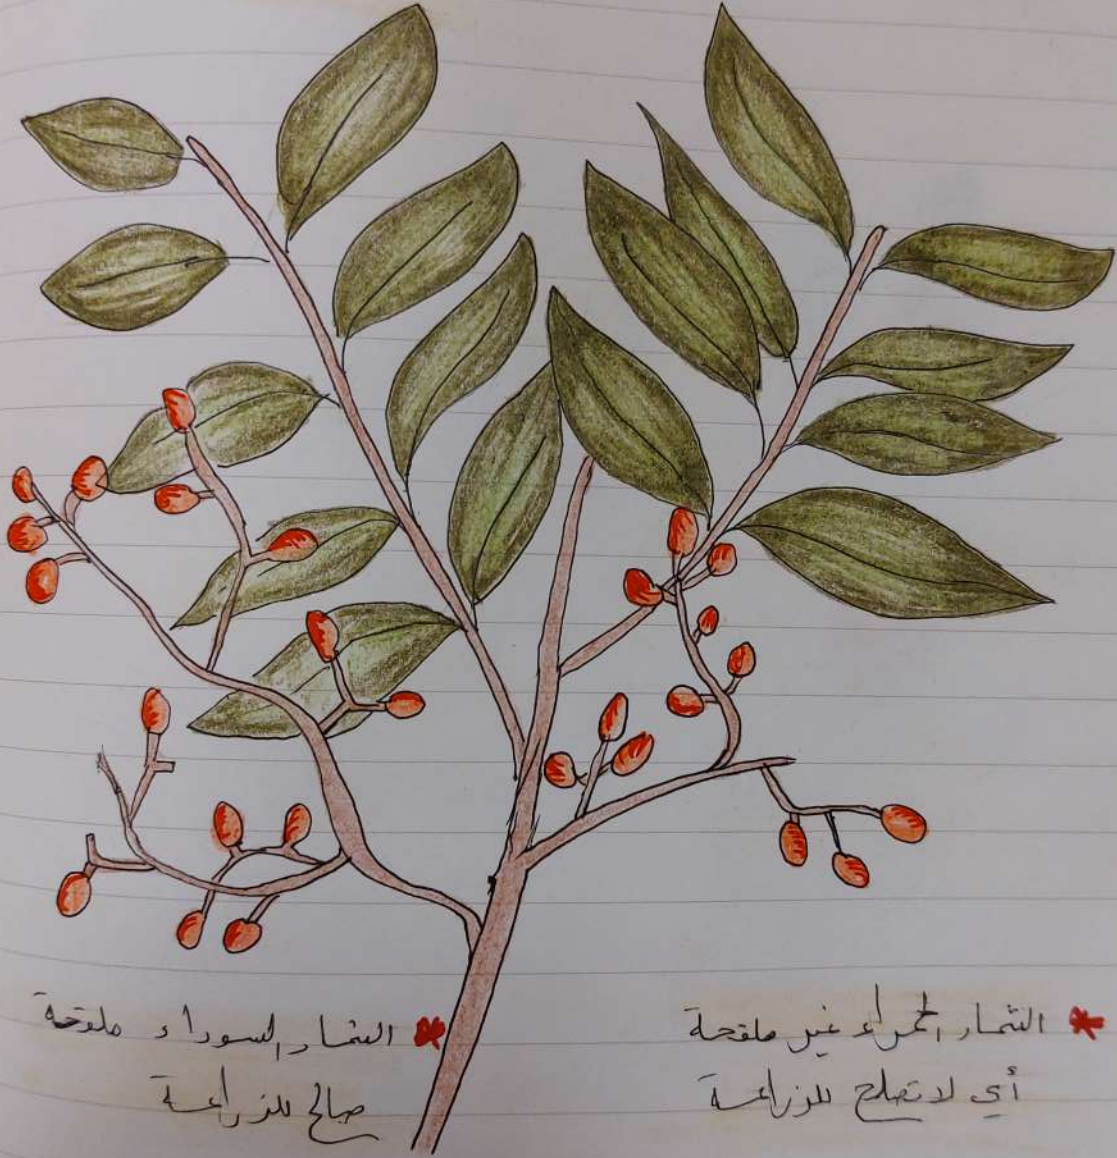 * الثمار الحمراء غير ملقحة
أي لا تصلح للزراعة
* الثمار السوداء ملقحة
صالح للزراعة